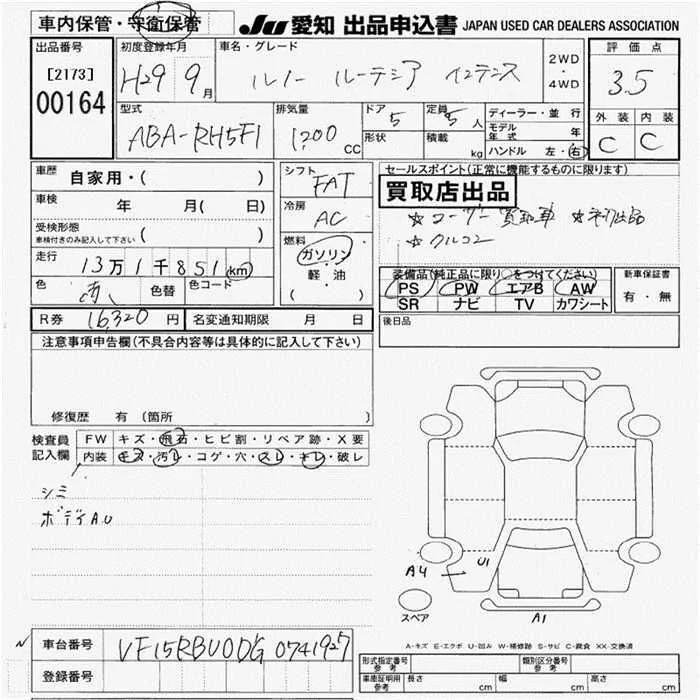 車内保管・守衛保管
JU 愛知 出品申込書 JAPAN USED CAR DEALERS ASSOCIATION
出品番号
[2173]
00164
初度登録年月
H29 9月
車名・グレード
ルノー ルーテシア インテンス
2WD
・
4WD
評価点
3.5
外装 内装
C C
型式
ABA-RH5F1
排気量
1200 CC
ドア 5
形状
定員 5人
積載 kg
ディーラー・並行
モデル年式 年
ハンドル 左・右
車歴 自家用・( )
車検 年 月( 日)
受検形態
車検付きのみ記入して下さい ( )
走行 13万1千851km
色 赤 色替 色コード
シフト
FAT
冷房
AC
燃料
ガソリン・
軽・油
( )
セールスポイント(正常に機能するものに限ります)
買取店出品
☆ユーザー買取車 ☆初出品
☆クルコン
装備品(純正品に限り○をつけてください)
PS PW エアB AW
SR ナビ TV カワシート
新車保証書
有・無
R券 16,320円 名変通知期限 月 日
後日品
注意事項申告欄(不具合内容等は具体的に記入して下さい)
修復歴 有 (箇所 )
検査員記入欄
FW キズ・飛石・ヒビ割・リペア跡・X要
内装 キズ・汚レ・コゲ・穴・スレ・キレ・破レ
シミ
ボディA.U
A4
U1
A1
スペア
A-キズ E-エクボ U-凹み W-補修跡 S-サビ C-腐食 XX-交換済
N
車台番号 VF15RBU0DG0741927
登録番号
形式指定番号 参考
類別区分番号 参考
車庫証明用 参考 長さ cm 幅 cm 高さ cm